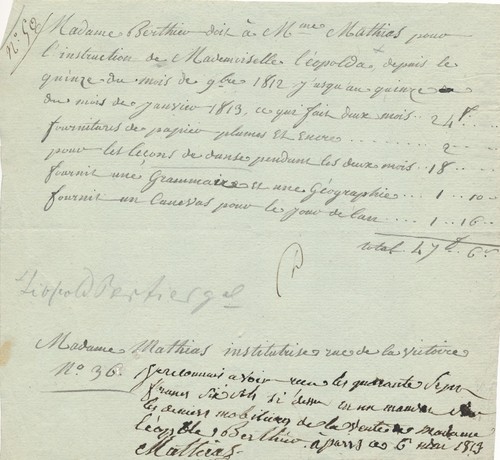 N° 58
Madame Berthier doit à Mme Mathias pour
l'instruction de Mademoiselle léopolda, depuis le
quinze du mois de 9bre 1812 jusqu'au quinze
du mois de Janvier 1813, ce qui fait deux mois .. 24 f
fournitures de papier plumes Et Encre ..... 2
pour les leçons de danse pendant les deux mois .. 18
fournit une Grammaire et une Géographie ... 1 .. 10
fournit un Canevas pour le jour de l'an .... 1 .. 16
total 47 f 6 s
Léopold Bertier
Madame Mathias institutrise rue de la victoire
N° 36. je reconnais avoir recu les quarante Sept
francs Six sols si dessu en un mandat
les deniers mobiliers de la vente de Madame
léopold Berthier a paris ce 6 mai 1813
Mathias